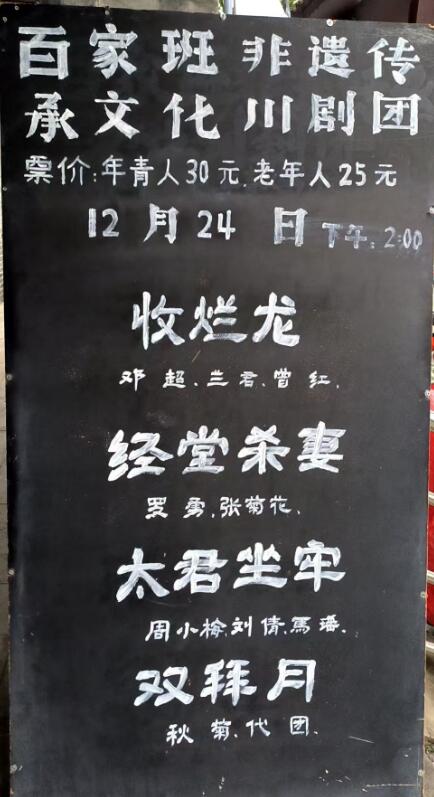 百家班非遗传
承文化川剧团
票价:年青人30元.老年人25元
12月24日下午:2:00
收烂龙
邓超.兰君.曾红.
经堂杀妻
罗勇.张菊花.
太君坐牢
周小梅.刘倩.馬璠.
双拜月
秋菊.代团.